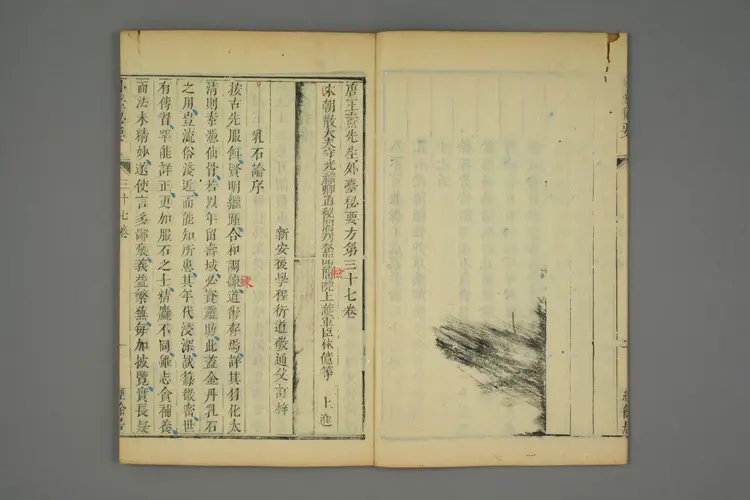 唐王燾先生外臺秘要方第三十七卷
宋朝散大夫守光祿卿直秘閣判登聞簡院上護軍臣林億等 上進
新安後學程衍道敬通父訂梓
乳石論序
按古先服餌賢明繼踵合和調鍊道術存焉詳其羽化太
清則素憑仙骨若以年留壽域必資靈助此蓋金丹乳石
之用豈流俗淺近而能知所患其年代浸深訣籙微密世
有傳習罕能詳正更加服石之士精麤不同雖志貪補養
而法未精妙遂使言多鄙褻義益繁蕪每加披覽實長疑
三十七卷